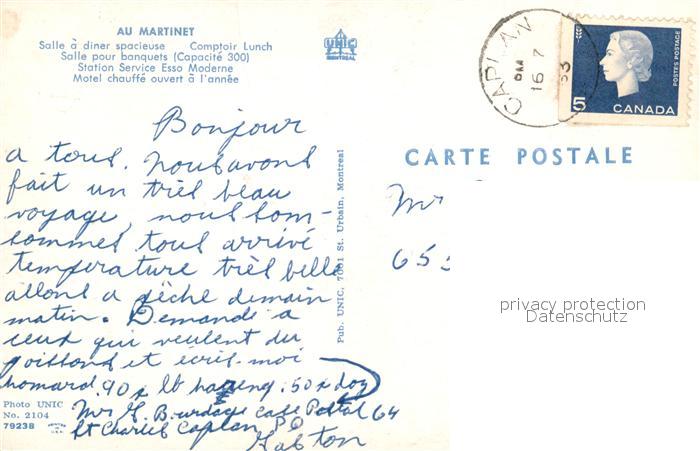 AU MARTINET
Salle à diner spacieuse Comptoir Lunch
Salle pour banquets (Capacité 300)
Station Service Esso Moderne
Motel chauffé ouvert à l'année
UNIC
MONTREAL
CAPLAN
PM
16 7
63
5
CANADA
POSTES POSTAGE
CARTE POSTALE
Bonjour
a tous. nous avons
fait un très beau
voyage, nous som-
sommes tous arrivé
temperature très belle
allons a pèche demain
matin. Demande a
ceux qui veulent du
poissons et écris-moi
homard .90 x lb hareng .50 x doz
Mr G. Bourdage Case Postal 64
St Charles Caplan P.Q
Gaston
Pub. UNIC, St. Urbain, Montreal
Photo UNIC
No. 2104
79238
Mr
65
privacy protection
Datenschutz